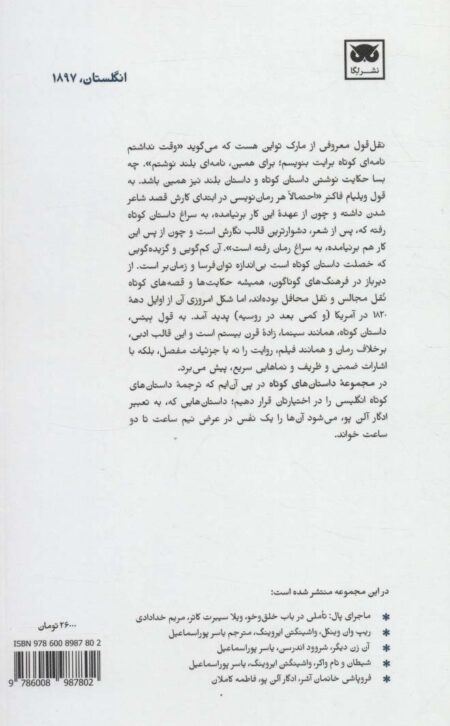 نشر لگا
انگلستان، ۱۸۹۷
نقل‌قول معروفی از مارک تواین هست که می‌گوید «وقت نداشتم
نامه‌ای کوتاه برایت بنویسم؛ برای همین، نامه‌ای بلند نوشتم». چه
بسا حکایت نوشتن داستان کوتاه و داستان بلند نیز همین باشد. به
قول ویلیام فاکنر «احتمالاً هر رمان‌نویسی در ابتدای کارش قصد شاعر
شدن داشته و چون از عهدهٔ این کار برنیامده، به سراغ داستان کوتاه
رفته که، پس از شعر، دشوارترین قالب نگارش است و چون از پس این
کار هم برنیامده، به سراغ رمان رفته است». آن کم‌گویی و گزیده‌گویی
که خصلت داستان کوتاه است بی‌اندازه توان‌فرسا و زمان‌بر است. از
دیرباز در فرهنگ‌های گوناگون، همیشه حکایت‌ها و قصه‌های کوتاه
نُقل مجالس و نقل محافل بوده‌اند، اما شکل امروزی آن از اوایل دههٔ
۱۸۲۰ در آمریکا (و کمی بعد در روسیه) پدید آمد. به قول بیتس،
داستان کوتاه، همانند سینما، زادهٔ قرن بیستم است و این قالب ادبی،
برخلاف رمان و همانند فیلم، روایت را نه با جزئیات مفصل، بلکه با
اشارات ضمنی و ظریف و نماهایی سریع، پیش می‌برد.
در مجموعهٔ داستان‌های کوتاه در پی آن‌ایم که ترجمهٔ داستان‌های
کوتاه انگلیسی را در اختیارتان قرار دهیم؛ داستان‌هایی که، به تعبیر
ادگار آلن پو، می‌شود آن‌ها را یک نفس در عرض نیم ساعت تا دو
ساعت خواند.
در این مجموعه منتشر شده است:
* ماجرای پال: تأملی در باب خلق‌وخو، ویلا سیبرت کاتر، مریم خدادادی
* ریپ وان وینکل، واشینگتن ایروینگ، مترجم یاسر پوراسماعیل
* آن زن دیگر، شروود اندرسن، یاسر پوراسماعیل
* شیطان و تام واکر، واشینگتن ایروینگ، یاسر پوراسماعیل
* فروپاشی خانمان آشر، ادگار آلن پو، فاطمه کاملان
۲۶۰۰۰ تومان
ISBN 978 600 8987 80 2
9 786008 987802